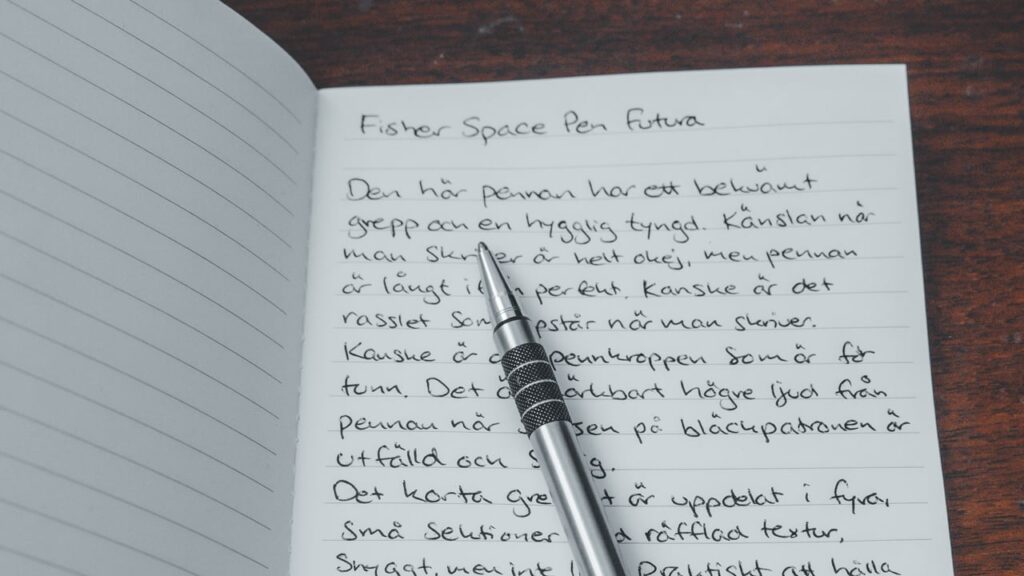 Fisher Space Pen Futura
Den här pennan har ett bekvämt
grepp och en hygglig tyngd. Känslan när
man skriver är helt okej, men pennan
är långt i perfekt. Kanske är det
rasslet som pstår när man skriver.
Kanske är pennkroppen som är för
tunn. Det är märkbart högre ljud från
pennan när på bläckpatronen är
utfälld och
Det korta är uppdelat i fyra,
små sektioner räfflad textur,
Snyggt, men inte praktiskt att hålla